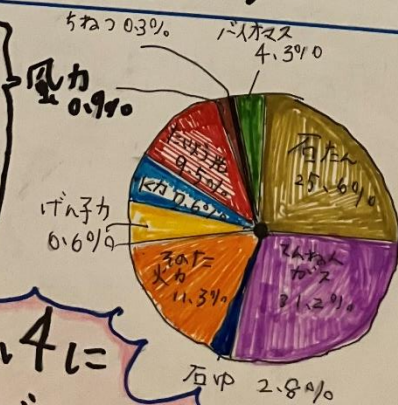 ちねつ 0.3%
バイオマス
4.3%
風力
0.9%
石たん
25.6%
たいよう光
9.5%
水力 7.6%
げん子力
6.6%
てんねん
ガス
31.2%
そのた
火力
11.3%
石ゆ 2.8%
4に